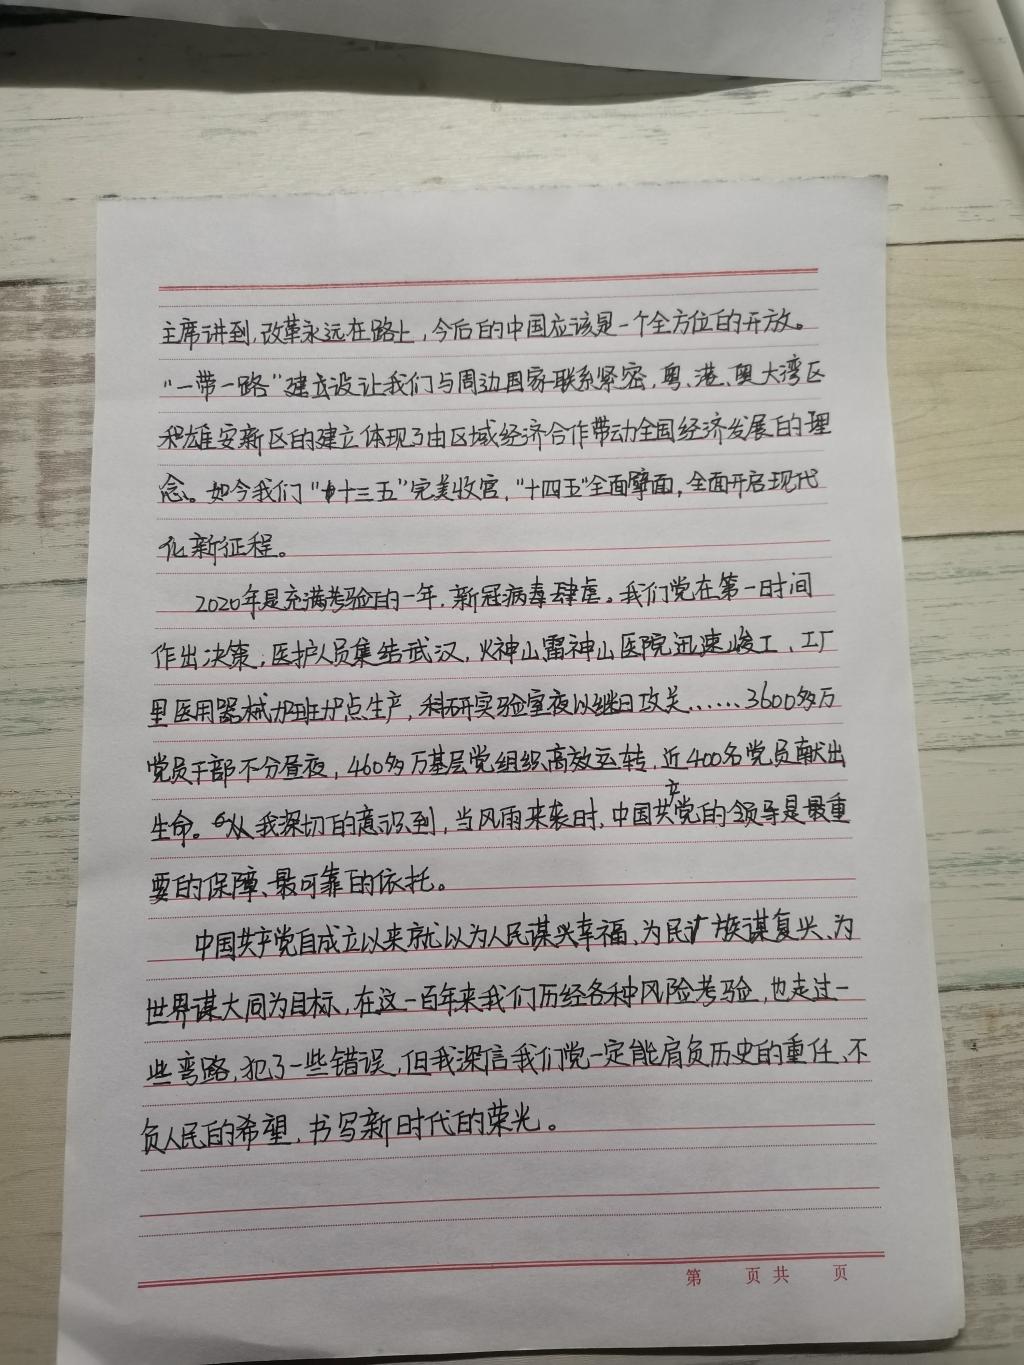 主席讲到,改革永远在路上,今后的中国应该是一个全方位的开放。
"一带一路"建设让我们与周边国家联系紧密,粤、港、奥大湾区
和雄安新区的建立体现了由区域经济合作带动全国经济发展的理
念。如今我们"十三五"完美收官,"十四五"全面擘画,全面开启现代
化新征程。
2020年是充满考验的一年,新冠病毒肆虐。我们党在第一时间
作出决策,医护人员集结武汉,火神山雷神山医院迅速竣工、工厂
里医用器械加班加点生产,科研实验室夜以继日攻关……3600多万
党员干部不分昼夜,460多万基层党组织高效运转,近400名党员献出
生命。从我深切的意识到,当风雨来袭时,中国共产党的领导是最重
要的保障、最可靠的依托。
中国共产党自成立以来就以为人民谋兴幸福、为民族谋复兴、为
世界谋大同为目标,在这一百年来我们历经各种风险考验,也走过一
些弯路,犯了一些错误,但我深信我们党一定能肩负历史的重任、不
负人民的希望,书写新时代的荣光。
第 页 共 页